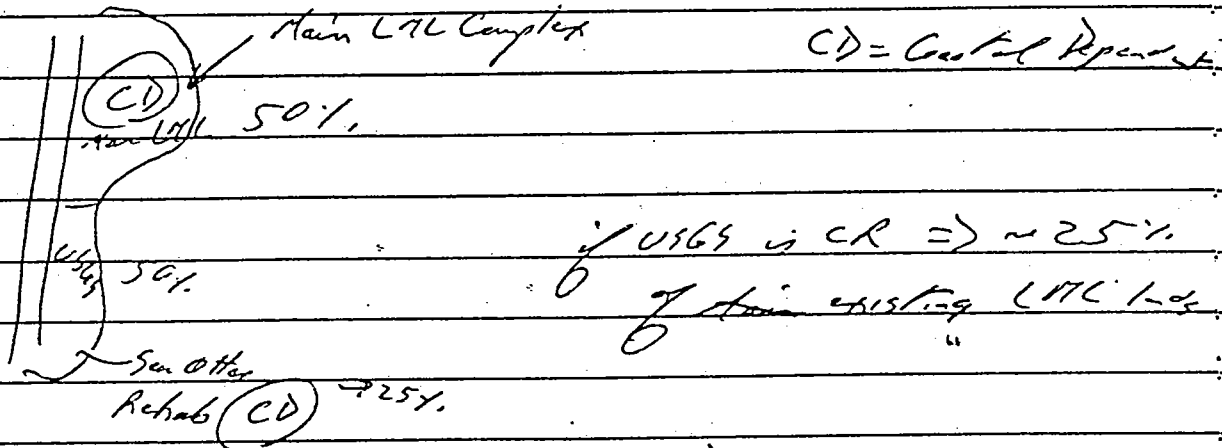 Main LML Complex
CD = Coastal Dependent
CD
Main LML 50%.
USGS 50%.
if USGS is CR => ~25%.
of main existing LML lnds
Sea Otter
Rehab CD → 25%.